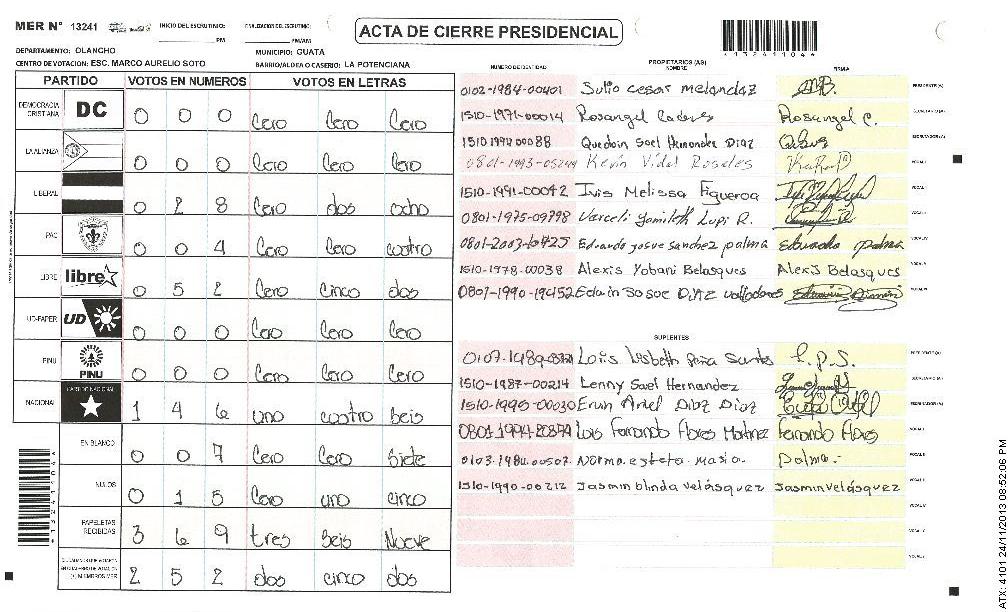 MER N° 13241 INICIO DEL ESCRUTINIO: PM FINALIZACION DEL ESCRUTINIO: PM/AM
ACTA DE CIERRE PRESIDENCIAL
1324111044
DEPARTAMENTO: OLANCHO MUNICIPIO: GUATA
CENTRO DE VOTACION: ESC. MARCO AURELIO SOTO BARRIO/ALDEA O CASERIO: LA POTENCIANA
PARTIDO VOTOS EN NUMEROS VOTOS EN LETRAS
DEMOCRACIA CRISTIANA DC 0 0 0 Cero Cero Cero
LA ALIANZA 0 0 0 Cero Cero Cero
LIBERAL 0 2 8 Cero dos ocho
PAC 0 0 4 Cero Cero cuatro
LIBRE libre 0 5 2 Cero cinco dos
UD-FAPER UD 0 0 0 Cero Cero Cero
PINU PINU 0 0 0 Cero Cero Cero
NACIONAL PARTIDO NACIONAL 1 4 6 uno cuatro Seis
EN BLANCO 0 0 7 Cero Cero Siete
NULOS 0 1 5 Cero uno cinco
PAPELETAS RECIBIDAS 3 6 9 tres Seis Nueve
2 5 2 dos cinco dos
NUMERO DE IDENTIDAD PROPIETARIOS (AS) NOMBRE FIRMA
0102-1984-00401 Julio Cesar Melendez PRESIDENTE (A)
1510-1971-00014 Rosangel Caderes Rosangel C. SECRETARIO (A)
1510 1992 00088 Quedoin Sael Hernandez Diaz ESCRUTADOR (A)
0801-1993-05244 Kevin Vidal Rosales VOCAL I
1510-1991-00042 Ivis Melissa Figueroa VOCAL II
0801-1975-09798 Varceli Yamileth Lupi R. VOCAL III
0801-2003-10425 Eduardo josue sanchez palma Eduardo palma VOCAL IV
1510-1978-00038 Alexis Yobani Belasques Alexis Belasques VOCAL V
0801-1990-19452 Edwin Josue Diaz valladares
SUPLENTES
Lois Lisbeth Peña Santos L.P.S. PRESIDENTE (A)
1510-1987-00214 Lenny Sael Hernandez SECRETARIO (A)
1510-1995-00030 Erwin Ariel Diaz Diaz ESCRUTADOR (A)
0801-1994-20874 Luis Fernando Flores Martinez Fernando Flores VOCAL I
0103-1984-00507 Norma Palma VOCAL II
1510-1990-00212 Jasmin blinda velásquez Jasmin velásquez VOCAL III
VOCAL IV
VOCAL V
VOCAL VI
ATX: 4101 24/11/2013 08:52:06 PM